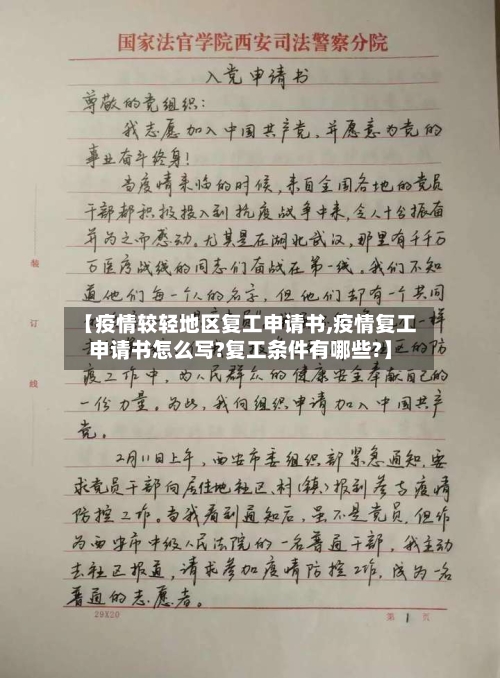 国家法官学院西安司法警察分院
入党申请书
尊敬的党组织：
我志愿加入中国共产党，并愿意为党的
事业奋斗终身！
当疫情来临的时候，来自全国各地的党员
干部都积极投入到抗疫战争中来，令人十分振奋
并为之而感动。尤其是在湖北武汉，那里有千千万
万医疗战线的同志们奋战在第一线。我们不知
道他们每一个人的名字，但他们却有一个共同
【疫情较轻地区复工申请书,疫情复工
申请书怎么写?复工条件有哪些?】
的防
疫工作中，为人民群众的健康安全奉献自己的
一份力量。为此，我向组织申请加入中国共产
党。
2月11日上午，西安市委组织部紧急通知，要
求党员干部向居住地社区、村(镇)报到参与疫情
防控工作。当我看到通知后，虽不是党员，但作
为西安市中级人民法院的一名普通干部，我主动
去社区报道，请求参加疫情防控工作，成为一名
普通的志愿者。
装
订
线
29X20
第 1 页